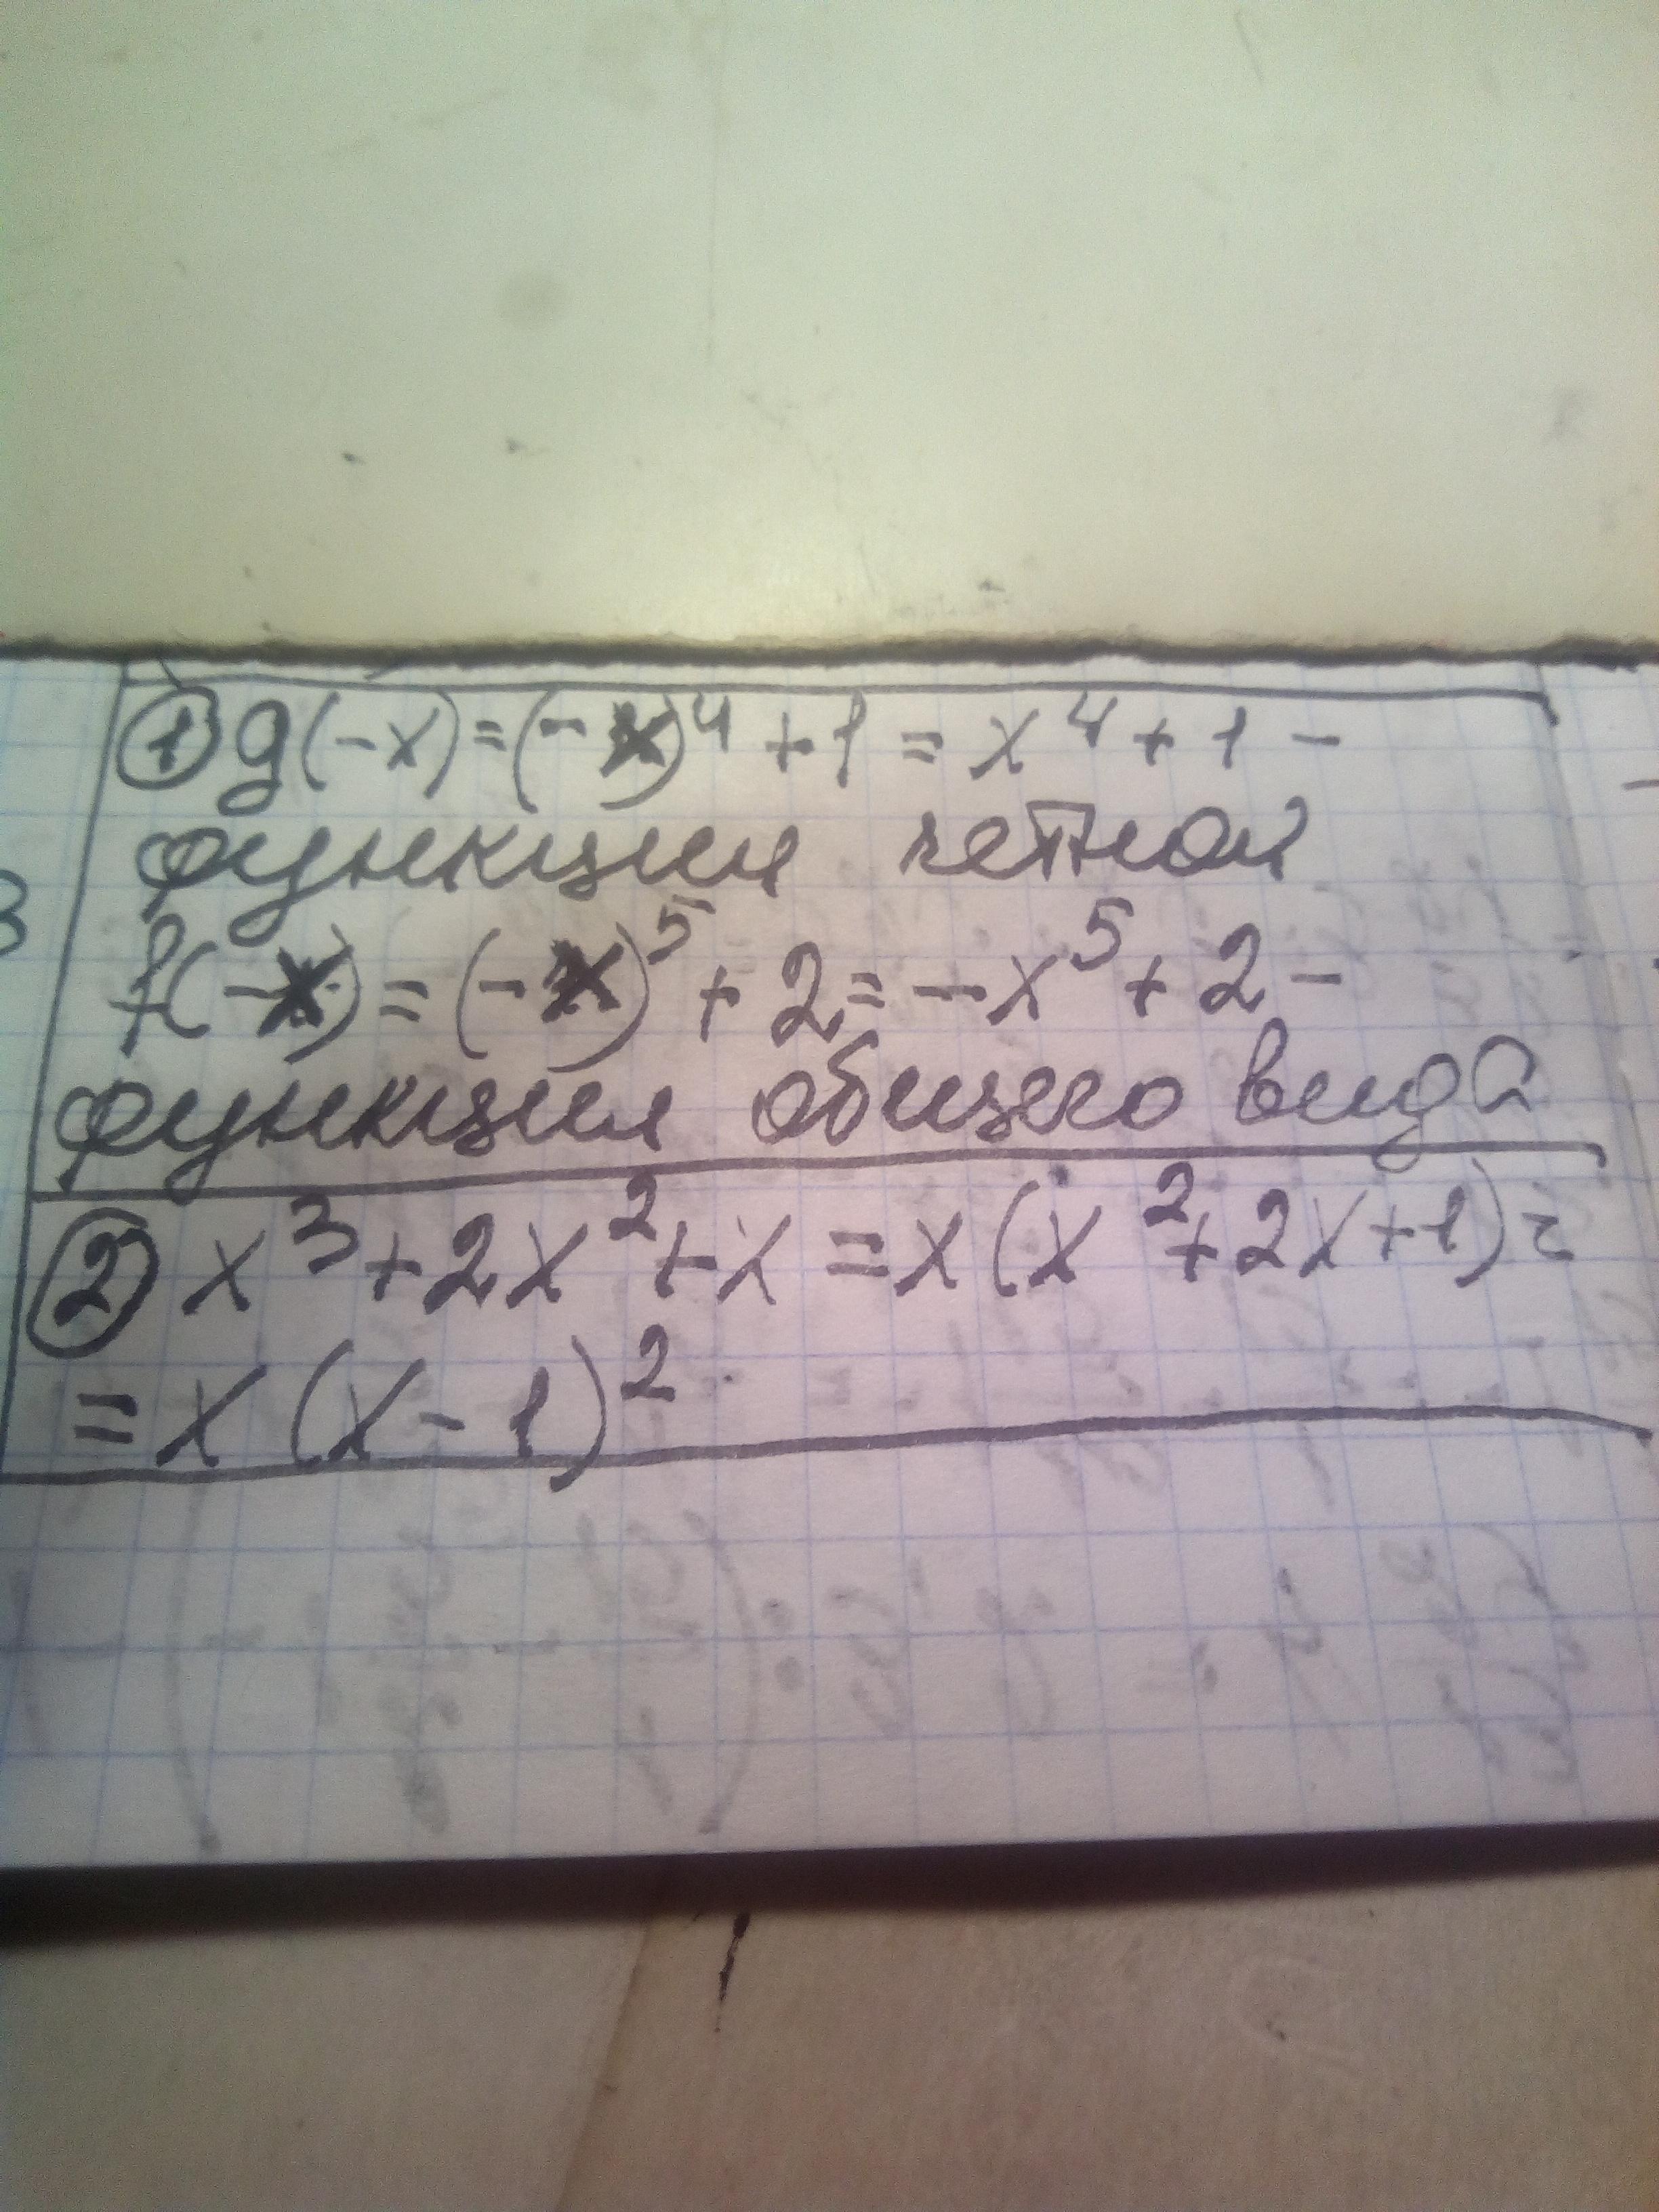 ① g(-x)=(-x)⁴+1=x⁴+1-
функции четной
f(-x)=(-x)⁵+2=-x⁵+2-
функция общего вида
② x³+2x²+x=x(x²+2x+1)=
=x(x-1)²